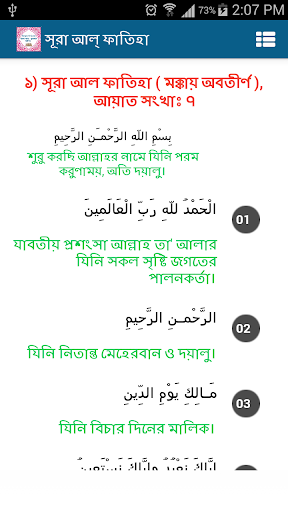 73% 2:07 PM
সূরা আল্ ফাতিহা
১) সূরা আল ফাতিহা ( মক্কায় অবতীর্ণ ),
আয়াত সংখাঃ ৭
بِسْمِ اللّهِ الرَّحْمَـنِ الرَّحِيمِ
শুরু করছি আল্লাহর নামে যিনি পরম
করুণাময়, অতি দয়ালু।
الْحَمْدُ للّهِ رَبِّ الْعَالَمِينَ
01
যাবতীয় প্রশংসা আল্লাহ তা' আলার
যিনি সকল সৃষ্টি জগতের
পালনকর্তা।
الرَّحْمـنِ الرَّحِيمِ
02
যিনি নিতান্ত মেহেরবান ও দয়ালু।
مَـالِكِ يَوْمِ الدِّينِ
03
যিনি বিচার দিনের মালিক।
إِيَّاكَ نَعْبُدُ وإِيَّاكَ نَسْتَعِينُ